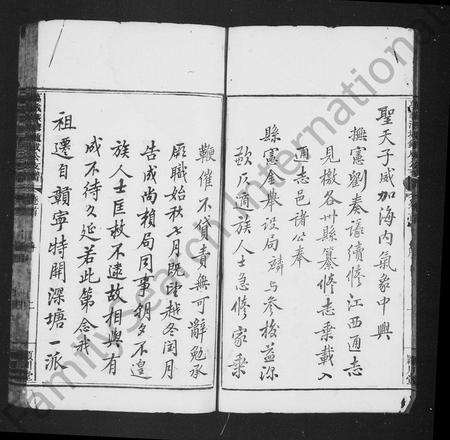 聖天子威加海內氣象中興
撫憲劉奏議續修江西通志
見檄各州縣纂修志乘載入
通志邑諸公奉
縣憲金舉設局麟与參校益深
歉仄適族人士急修家乘
鞭催不貸責無可辭勉承
厥職始秋七月既望越冬閏月
告成尚賴局同事朝夕不遑
族人士匡救不逮故相與有
成不待久延若此第念我
祖遷自贛寧特開深塘一派
FamilySearch International